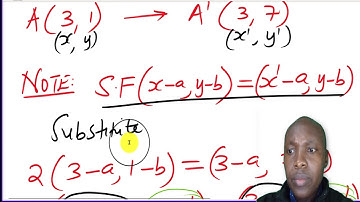 A(3, 1) → A'(3, 7)
(x, y) (x', y')
NOTE: S.F(x-a, y-b) = (x'-a, y-b)
Substitute
2(3-a, 1-b) = (3-a,